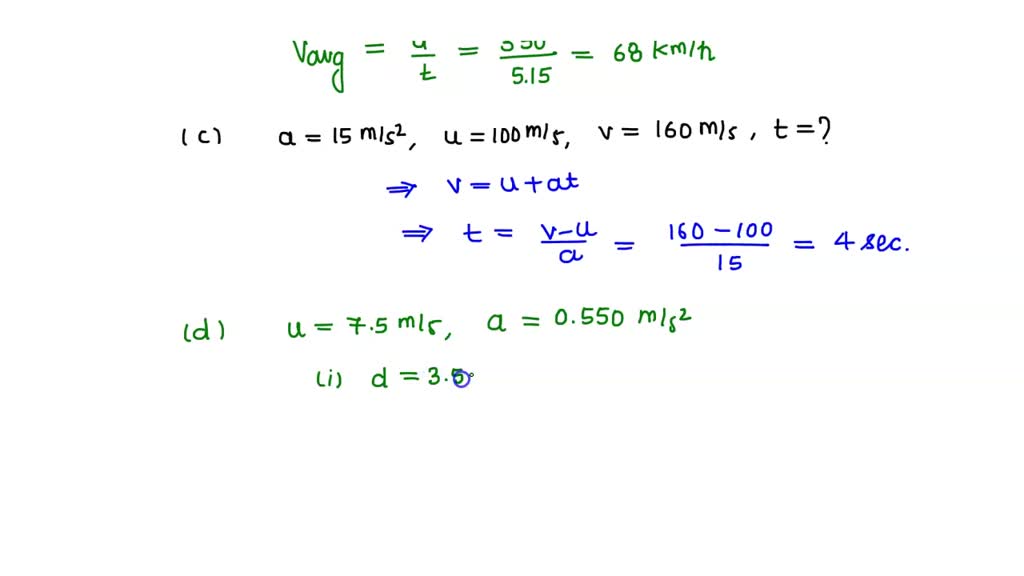 Vavg = /t = /5.15 = 68 km/h
(c) a = 15 m/s², u = 100 m/s, v = 160 m/s, t = ?
⇒ v = u + at
⇒ t = v-u/a = 160-100/15 = 4 sec.
(d) u = 7.5 m/s, a = 0.550 m/s²
(i) d = 3.5